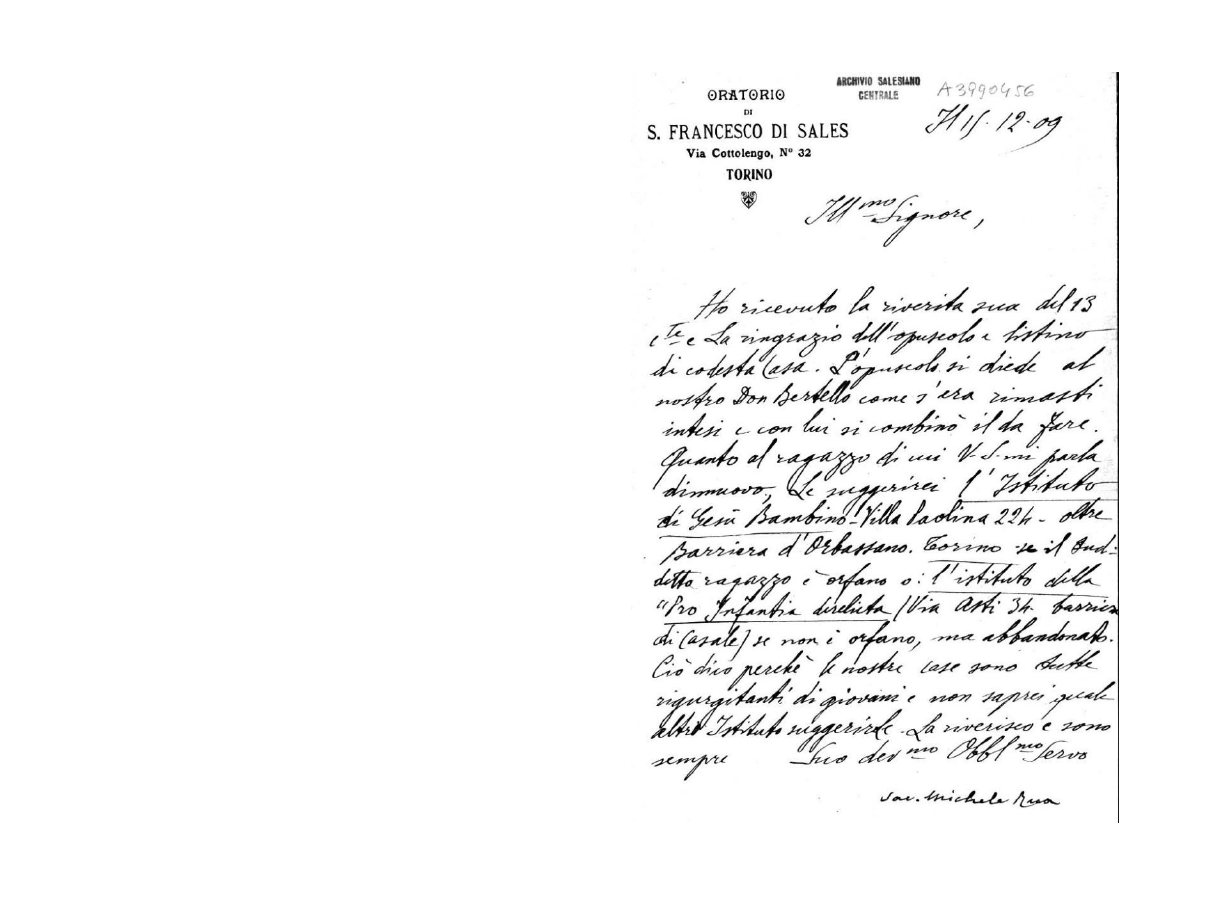 ORATORIO
DI
S. FRANCESCO DI SALES
Via Cottolengo, N° 32
TORINO
ARCHIVIO SALESIANO
CENTRALE
A3990456
Il 15-12-09
Ill.mo Signore,
Ho ricevuto la riverita sua del 13
c.te e La ringrazio dell'opuscolo e listino
di codesta Casa. L'opuscolo si diede al
nostro Don Bertello come s'era rimasti
intesi e con lui si combinò il da fare.
Quanto al ragazzo di cui V. S. mi parla
dinnuovo, Le suggerirei l'Istituto
di Gesù Bambino - Villa Paolina 224 - oltre
Barriera d'Orbassano. Torino se il sud-
detto ragazzo è orfano o: l'istituto della
"Pro Infantia derelicta (Via Asti 34 barriera
di Casale) se non è orfano, ma abbandonato.
Ciò dico perchè le nostre case sono tutte
rigurgitanti di giovani e non saprei quale
altro Istituto suggerirle. La riverisco e sono
sempre Suo dev.mo Obbl.mo Servo
Sac. Michele Rua